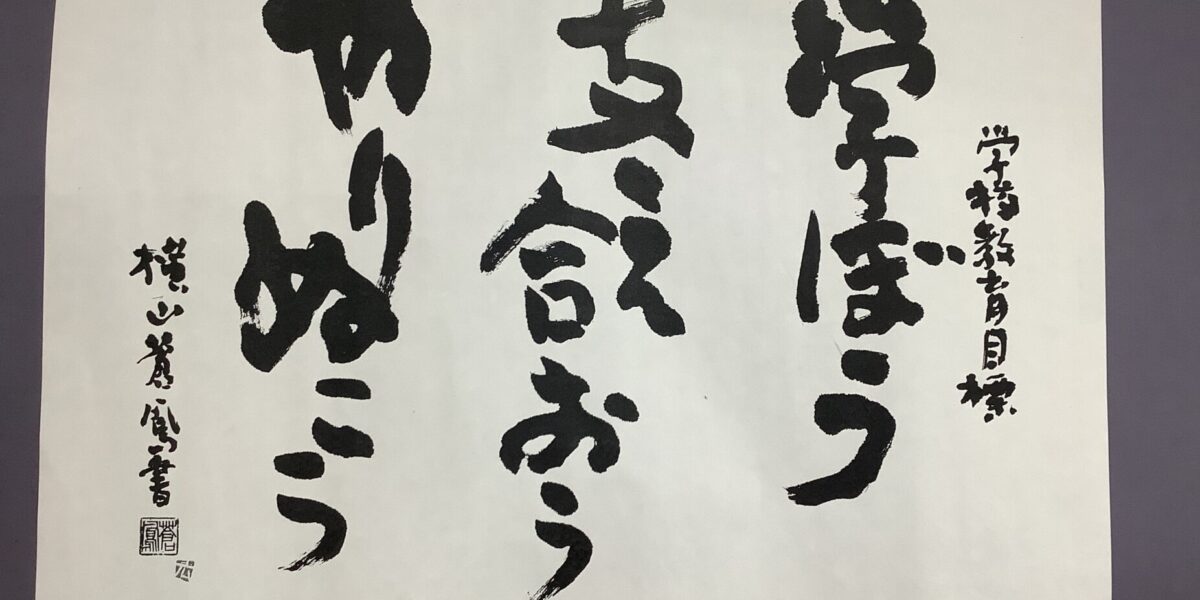 学校教育目標
学ぼう
支え合おう
やりぬこう
横山蒼鳳書
蒼鳳